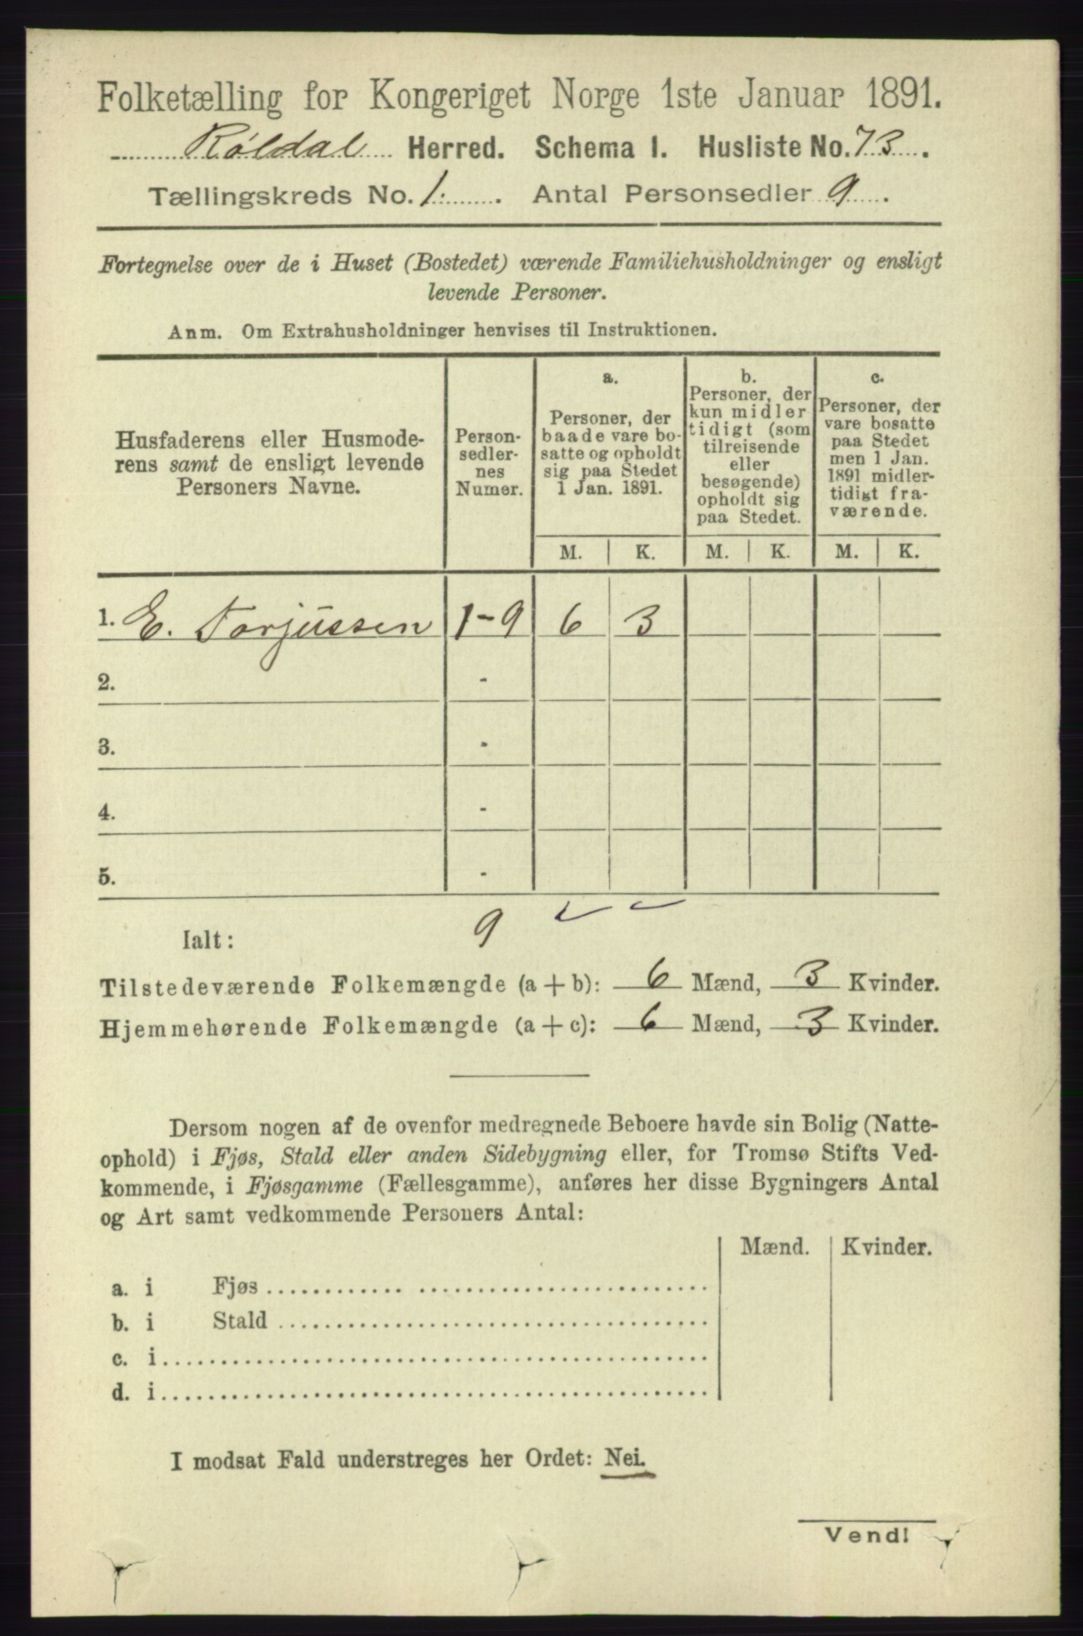 Folketælling for Kongeriget Norge 1ste Januar 1891.
Røldal Herred. Schema I. Husliste No. 73.
Tællingskreds No. 1. Antal Personsedler 9.
Fortegnelse over de i Huset (Bostedet) værende Familiehusholdninger og ensligt
levende Personer.
Anm. Om Extrahusholdninger henvises til Instruktionen.
Husfaderens eller Husmode-
rens samt de ensligt levende
Personers Navne.
Person-
sedler-
nes
Numer.
a.
Personer, der
baade vare bo-
satte og opholdt
sig paa Stedet
1 Jan. 1891.
b.
Personer, der
kun midler
tidigt (som
tilreisende
eller
besøgende)
opholdt sig
paa Stedet.
c.
Personer, der
vare bosatte
paa Stedet
men 1 Jan.
1891 midler-
tidigt fra-
værende.
M. K. M. K. M. K.
1. E. Torjussen 1-9 6 3
2. -
3. -
4. -
5. -
Ialt: 9
Tilstedeværende Folkemængde (a + b): 6 Mænd, 3 Kvinder.
Hjemmehørende Folkemængde (a + c): 6 Mænd, 3 Kvinder.
Dersom nogen af de ovenfor medregnede Beboere havde sin Bolig (Natte-
ophold) i Fjøs, Stald eller anden Sidebygning eller, for Tromsø Stifts Ved-
kommende, i Fjøsgamme (Fællesgamme), anføres her disse Bygningers Antal
og Art samt vedkommende Personers Antal:
Mænd. Kvinder.
a. i Fjøs
b. i Stald
c. i
d. i
I modsat Fald understreges her Ordet: Nei.
Vend!